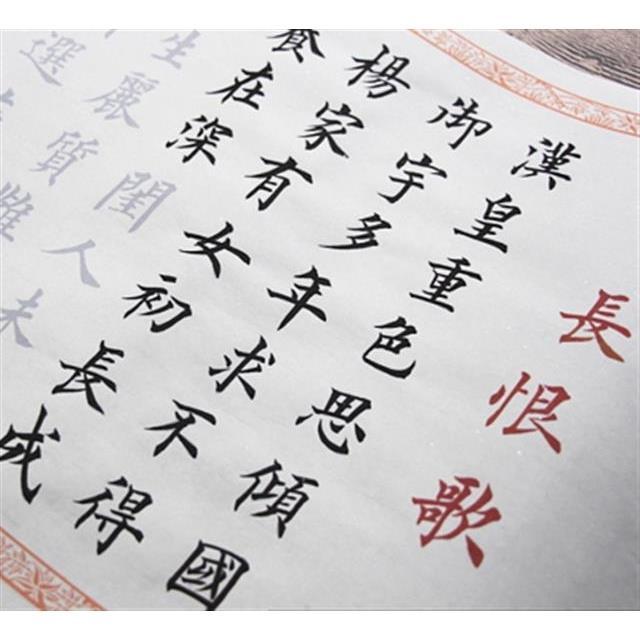 長恨歌
漢皇重色思傾國
御宇多年求不得
楊家有女初長成
養在深閨人未
生麗質難
選在